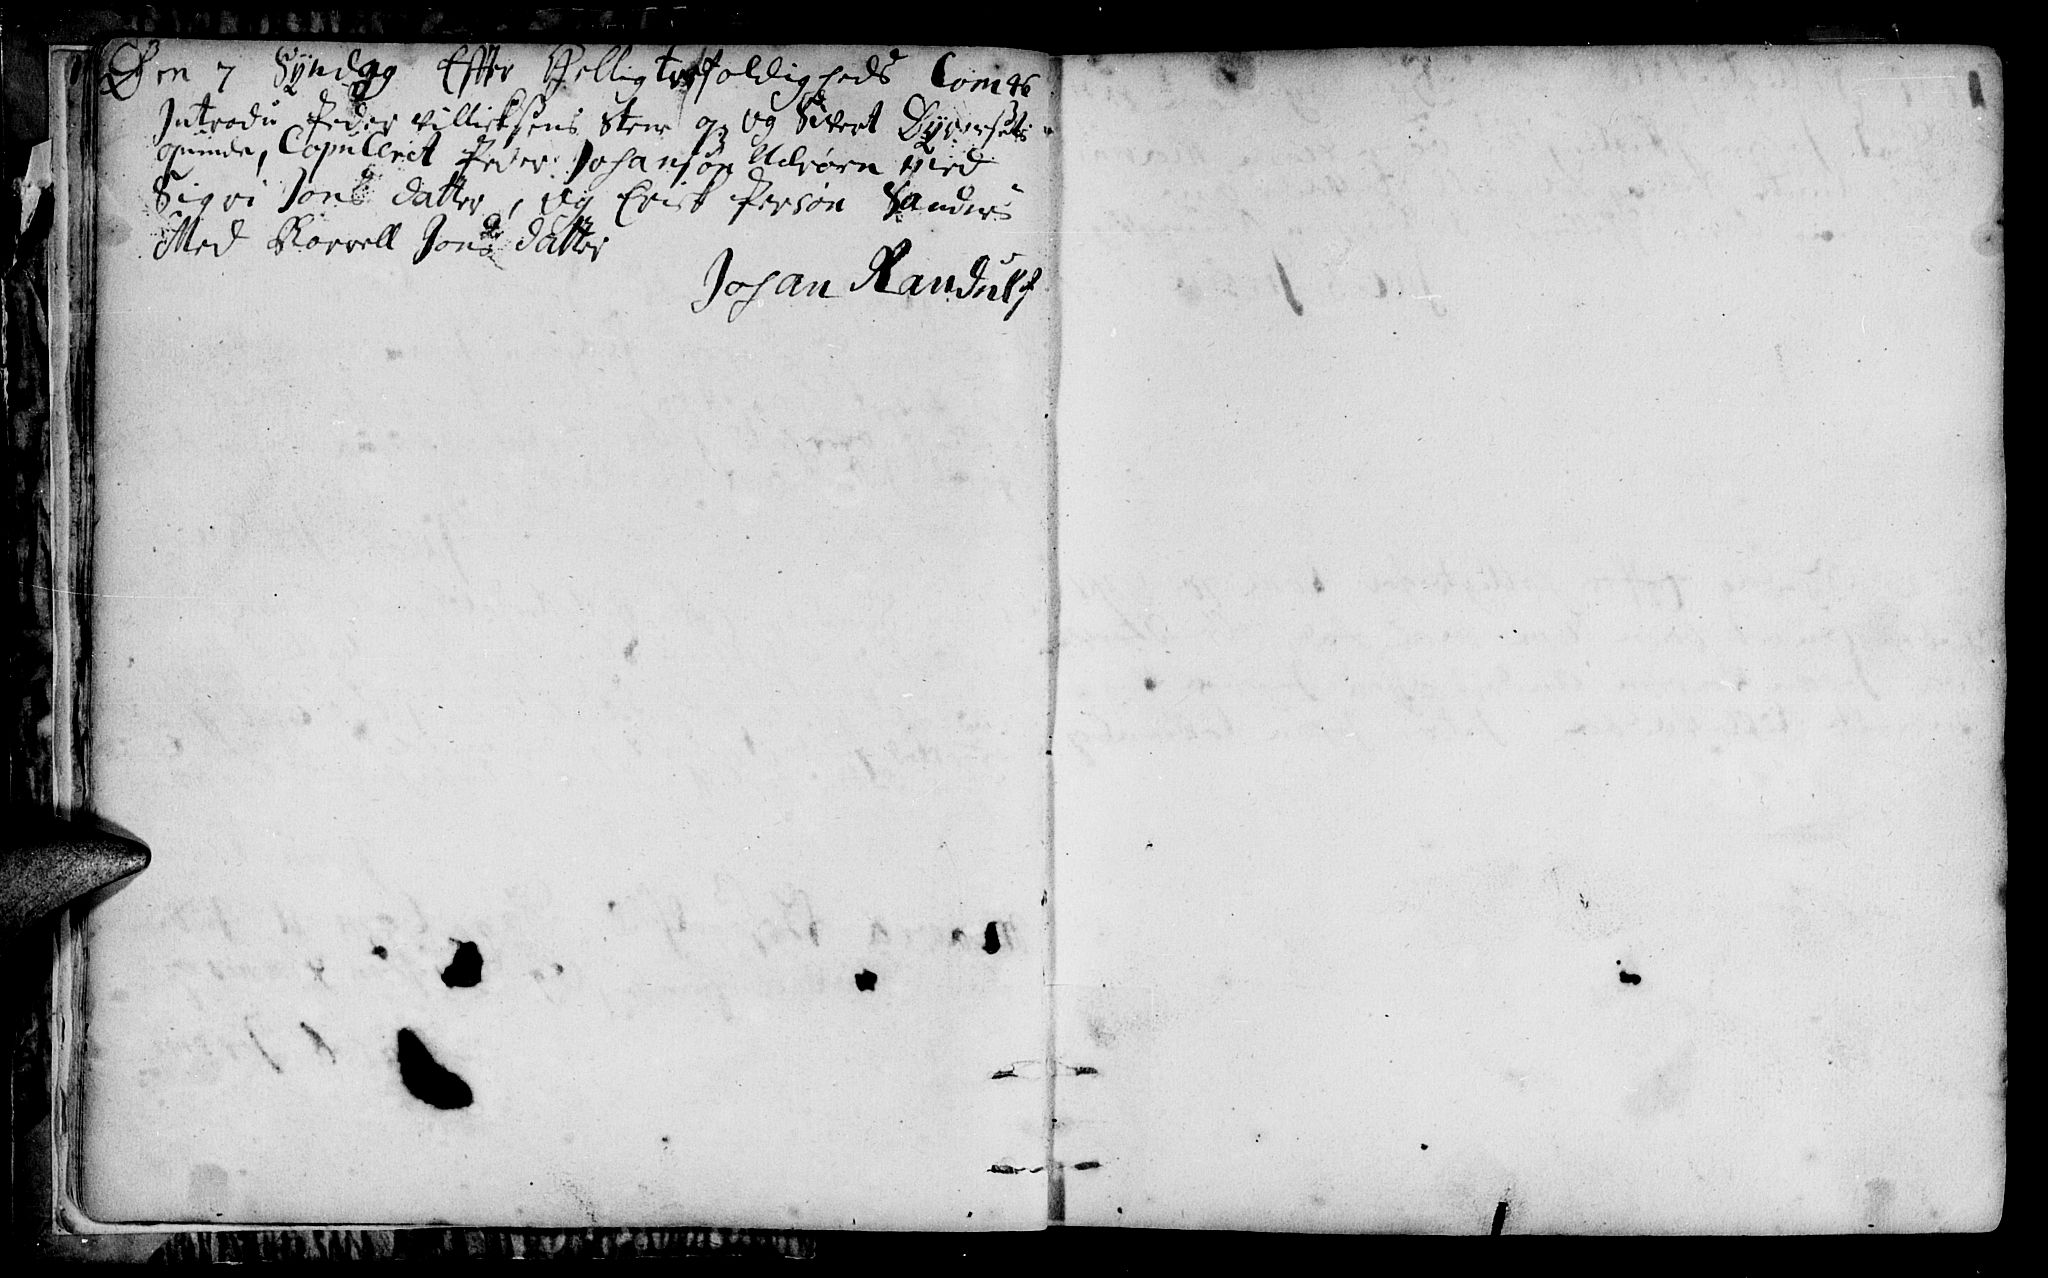 Den 7 Syndag Effter Hellig trefoldigheds Com 46
Introdu Peder villicksens Sten og og Sivert Dyrersets
qvinde, Copuleret Peder Johansøn Udrørn Med
Sigri Jons datter, og Erick Persøn Sanders
Med Korrell Jons datter
Johan Randulf